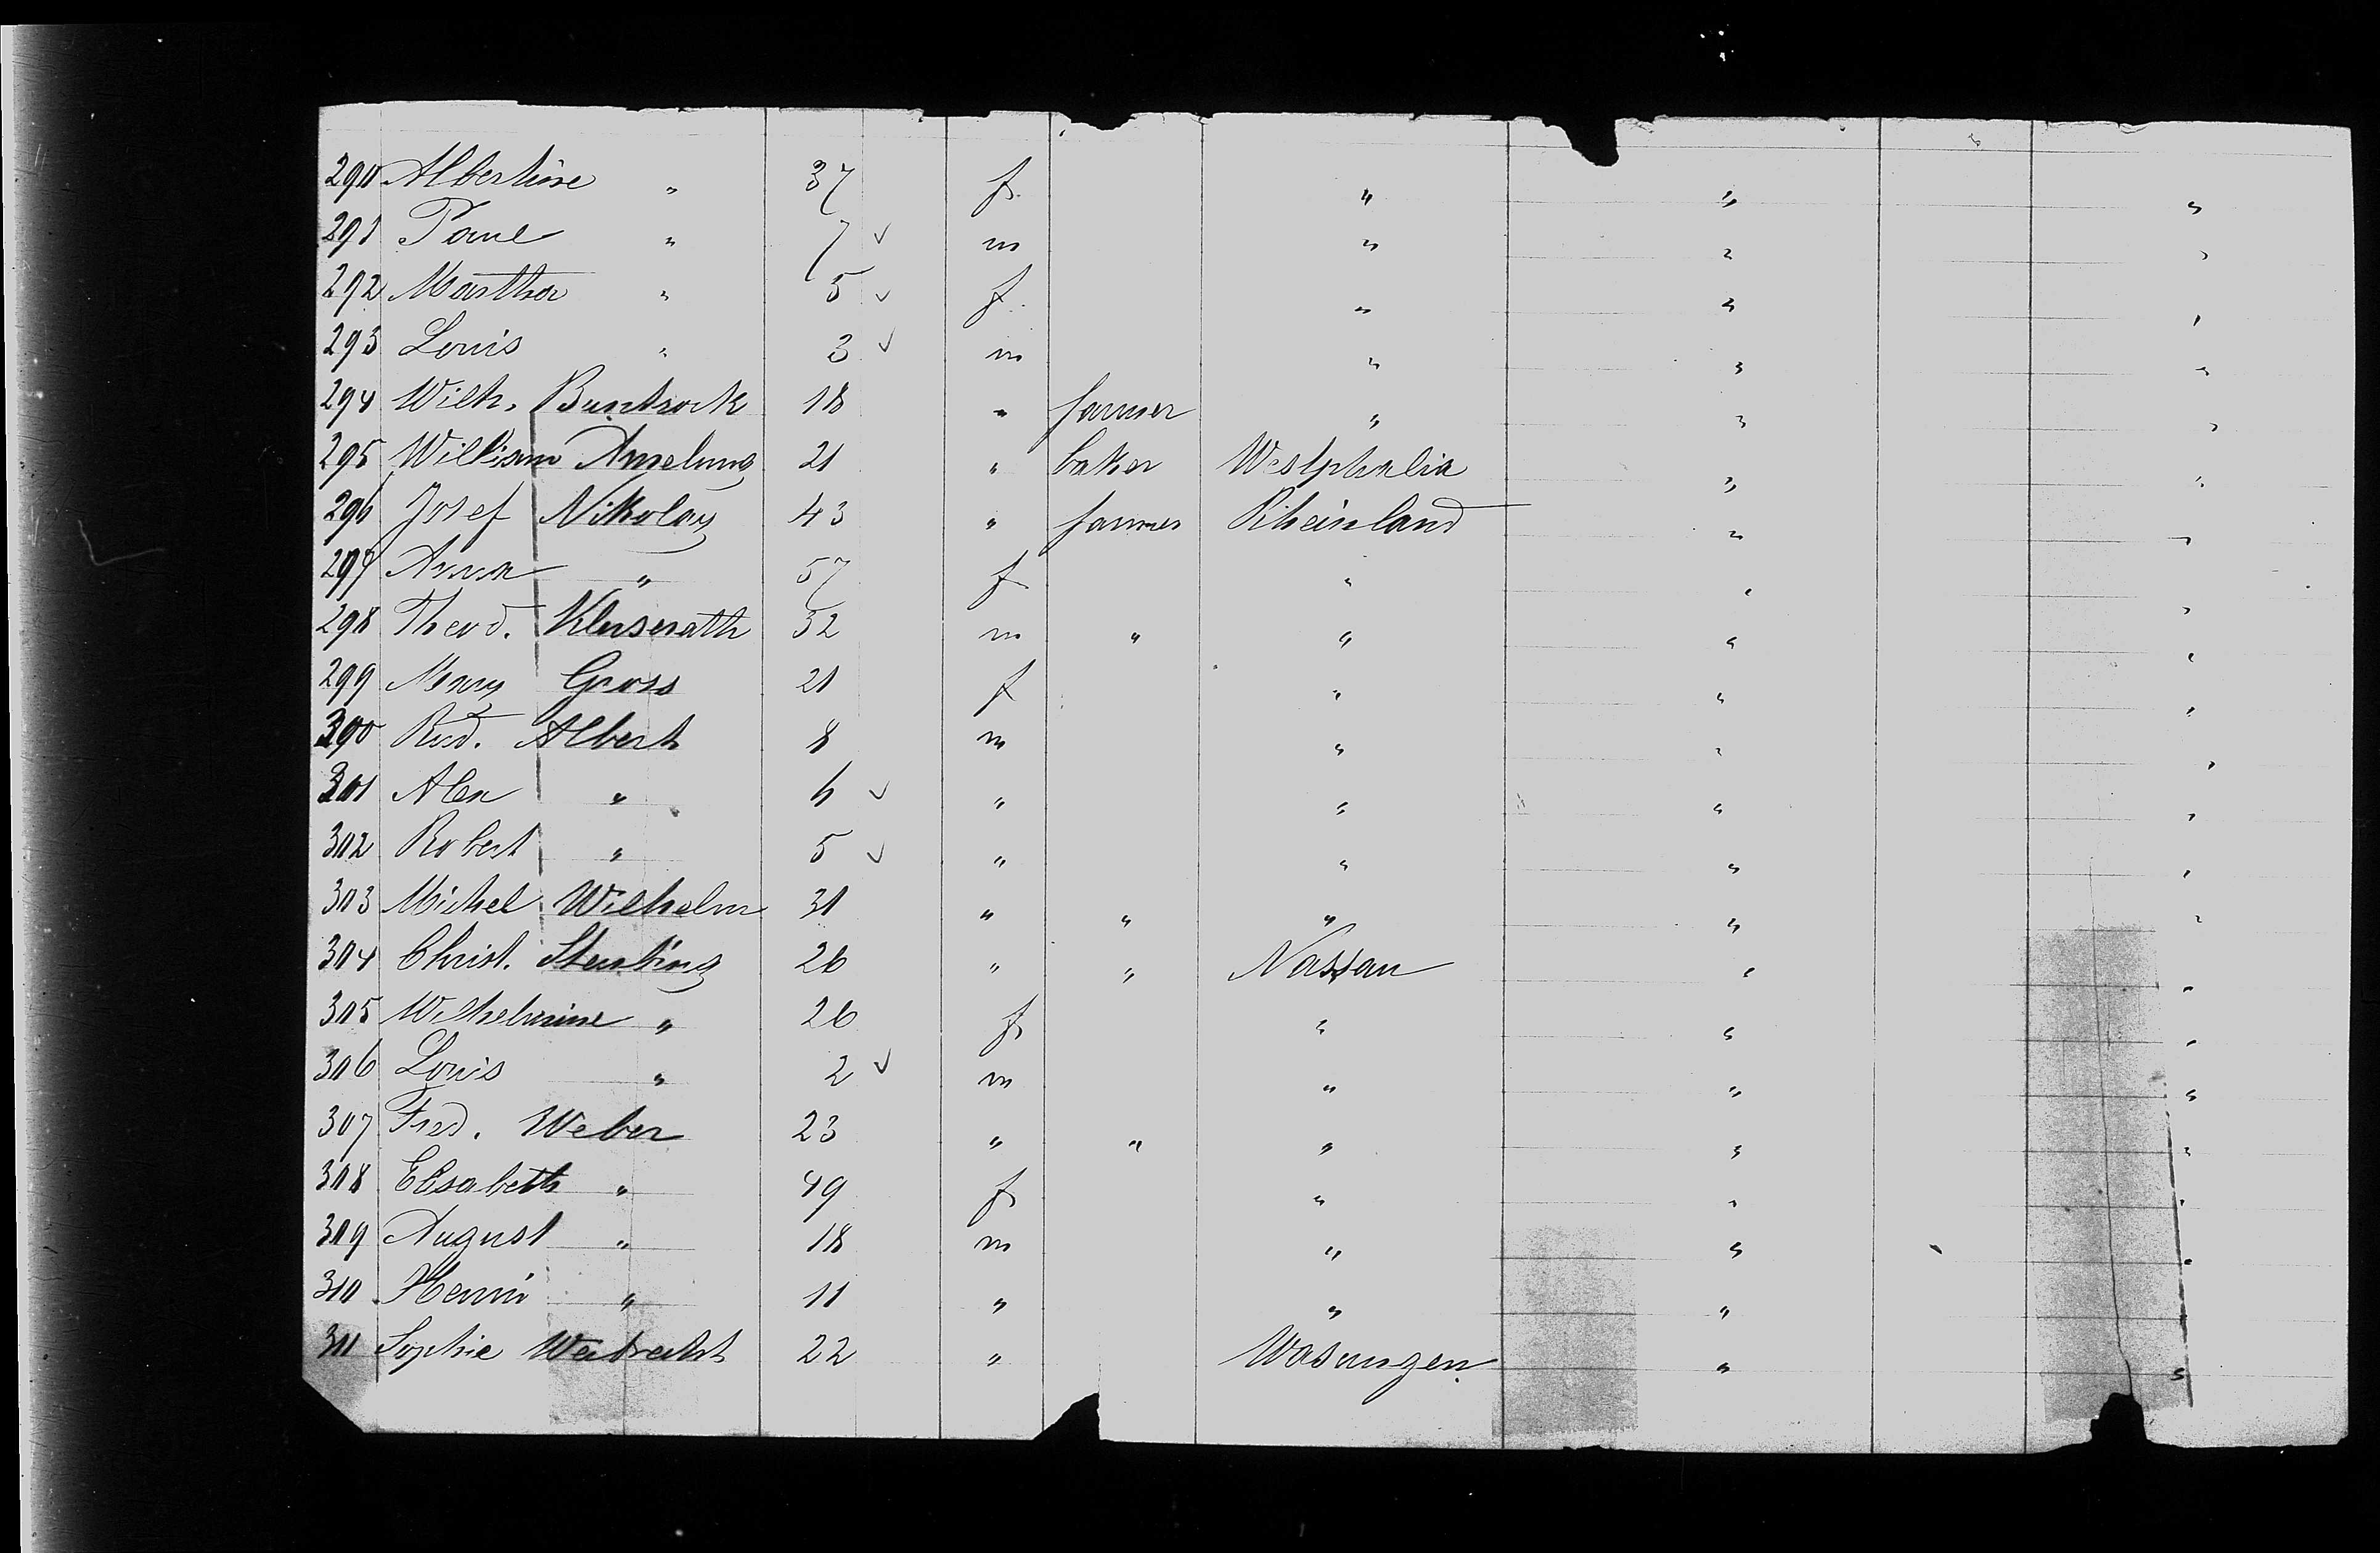 290 Albertine " 37 f. " " "
291 Paul " 7 ✓ m " " "
292 Martha " 5 ✓ f. " " "
293 Louis " 3 ✓ m " " "
294 Wilh. Buntrock 18 " farmer " " "
295 William Amelung 21 " baker Westphalia " "
296 Josef Nikolay 43 " farmer Rheinland " "
297 Anna " 57 f " " "
298 Theod. Kluserath 32 m " " " "
299 Gross 21 f " " "
300 Rud. Albert 8 m " " "
301 Alex " 6 ✓ " " " "
302 Robert " 5 ✓ " " " "
303 Michel Wilhelm 31 " " " " "
304 Christ. 26 " " Nassau " "
305 Wilhelmine " 26 f " " "
306 Louis " 2 ✓ m " " "
307 Fred. Weber 23 " " " " "
308 Elisabeth " 49 f " " "
309 August " 18 m " " "
310 Henri " 11 " " " "
311 Sophie 22 " Wasungen "  "